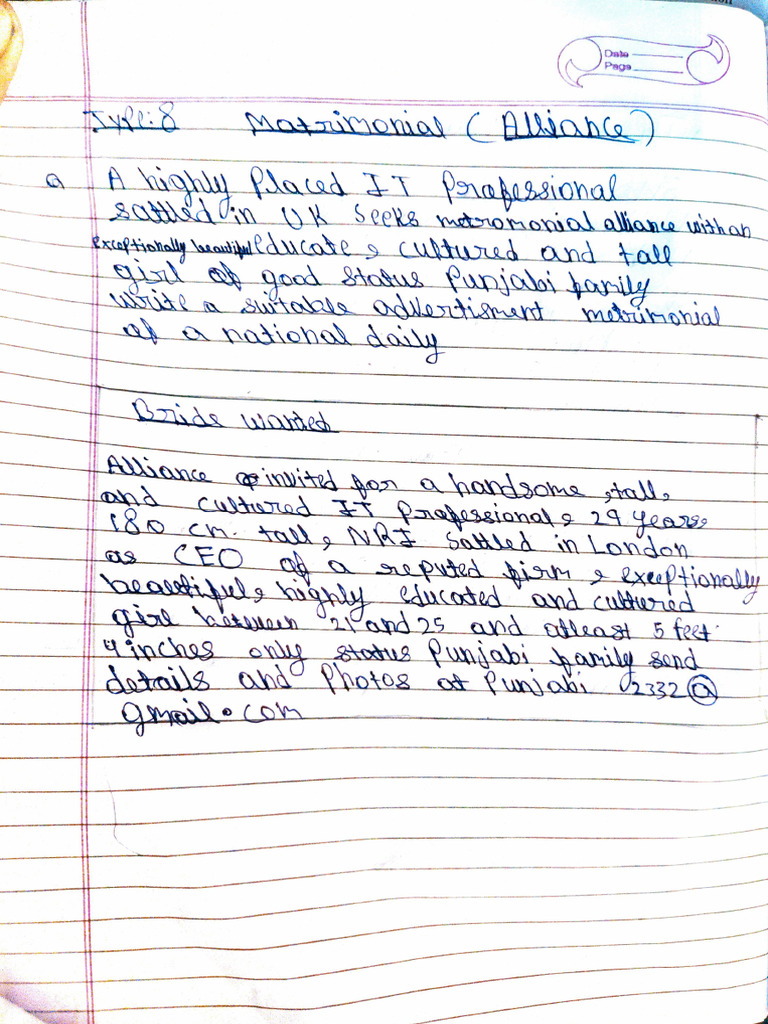 Date
Page
Type:8 Matrimonial (Alliance)
a A highly Placed IT Professional
sattled in UK seeks metromonial alliance with an
exceptionally beautiful educate, cultured and tall
girl of good status Punjabi family
write a suitable advertisment metrimonial
of a national daily
Bride wanted
Alliance invited for a handsome, tall,
and cultured IT Professional, 29 years,
180 cm. tall, NRI sattled in London
as CEO of a reputed firm, exceptionally
beautiful, highly educated and cultured
girl between 21 and 25 and atleast 5 feet
4 inches only status Punjabi family send
details and Photos at Punjabi 2332@
gmail.com